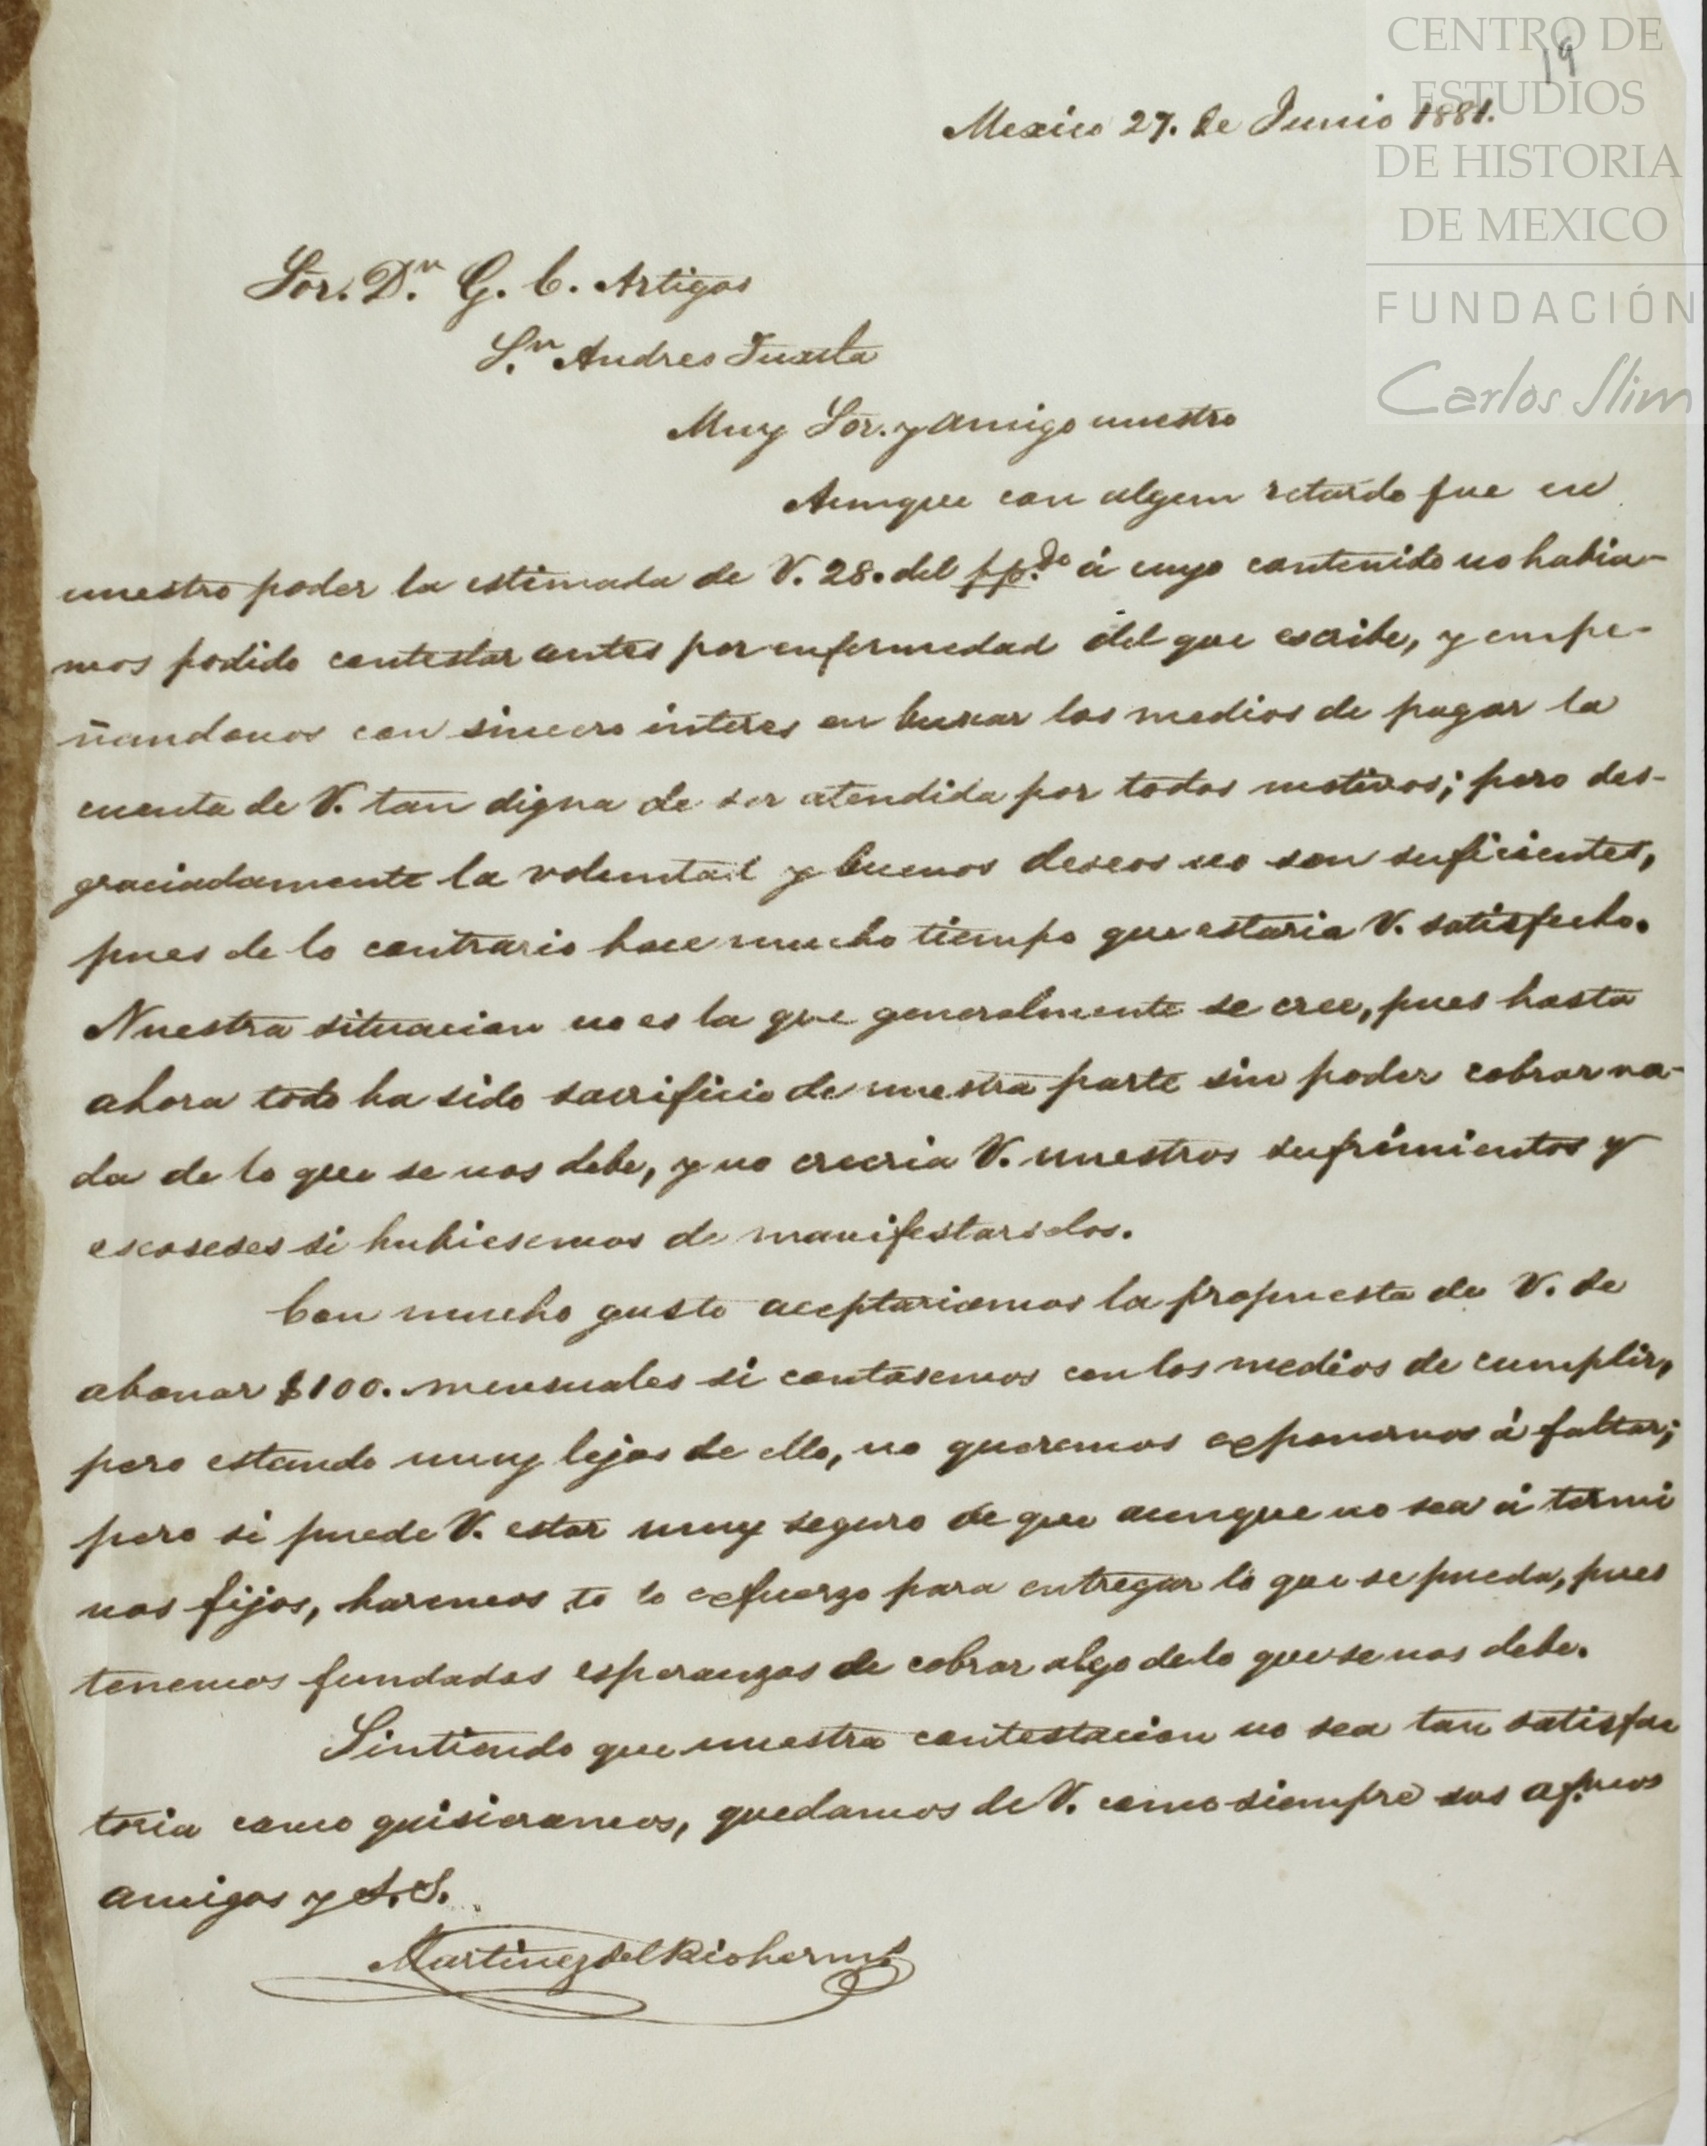 CENTRO DE
ESTUDIOS
DE HISTORIA
DE MEXICO
FUNDACIÓN
Carlos Slim
19
Mexico 27. de Junio 1881.
Sor. D.n G. C. Artigas
S.n Andres Tuxtla
Muy Sor. y amigo nuestro
Aunque con algun retardo fue en
nuestro poder la estimada de V. 28. del pp.do á cuyo contenido no habia-
mos podido contestar antes por enfermedad del que escribe, y empe-
ñandonos con sincero interes en buscar los medios de pagar la
cuenta de V. tan digna de ser atendida por todos motivos; pero des-
graciadamente la voluntad y buenos deseos no son suficientes,
pues de lo contrario hace mucho tiempo que estaria V. satisfecho.
Nuestra situacion no es la que generalmente se cree, pues hasta
ahora todo ha sido sacrificio de nuestra parte sin poder cobrar na-
da de lo que se nos debe, y no creeria V. nuestros sufrimientos y
escaseses si hubiesemos de manifestarselos.
Con mucho gusto aceptariamos la propuesta de V. de
abonar $100. mensuales si contasemos con los medios de cumplir,
pero estando muy lejos de ello, no queremos exponernos á faltar;
pero si puede V. estar muy seguro de que aunque no sea á termi
nos fijos, haremos to lo exfuerzo para entregar lo que se pueda, pues
tenemos fundadas esperanzas de cobrar algo de lo que se nos debe.
Sintiendo que nuestra contestacion no sea tan satisfac
toria como quisieramos, quedamos de V. como siempre sus af.mos
amigos y S.S.
Martinez del Rio herm.s